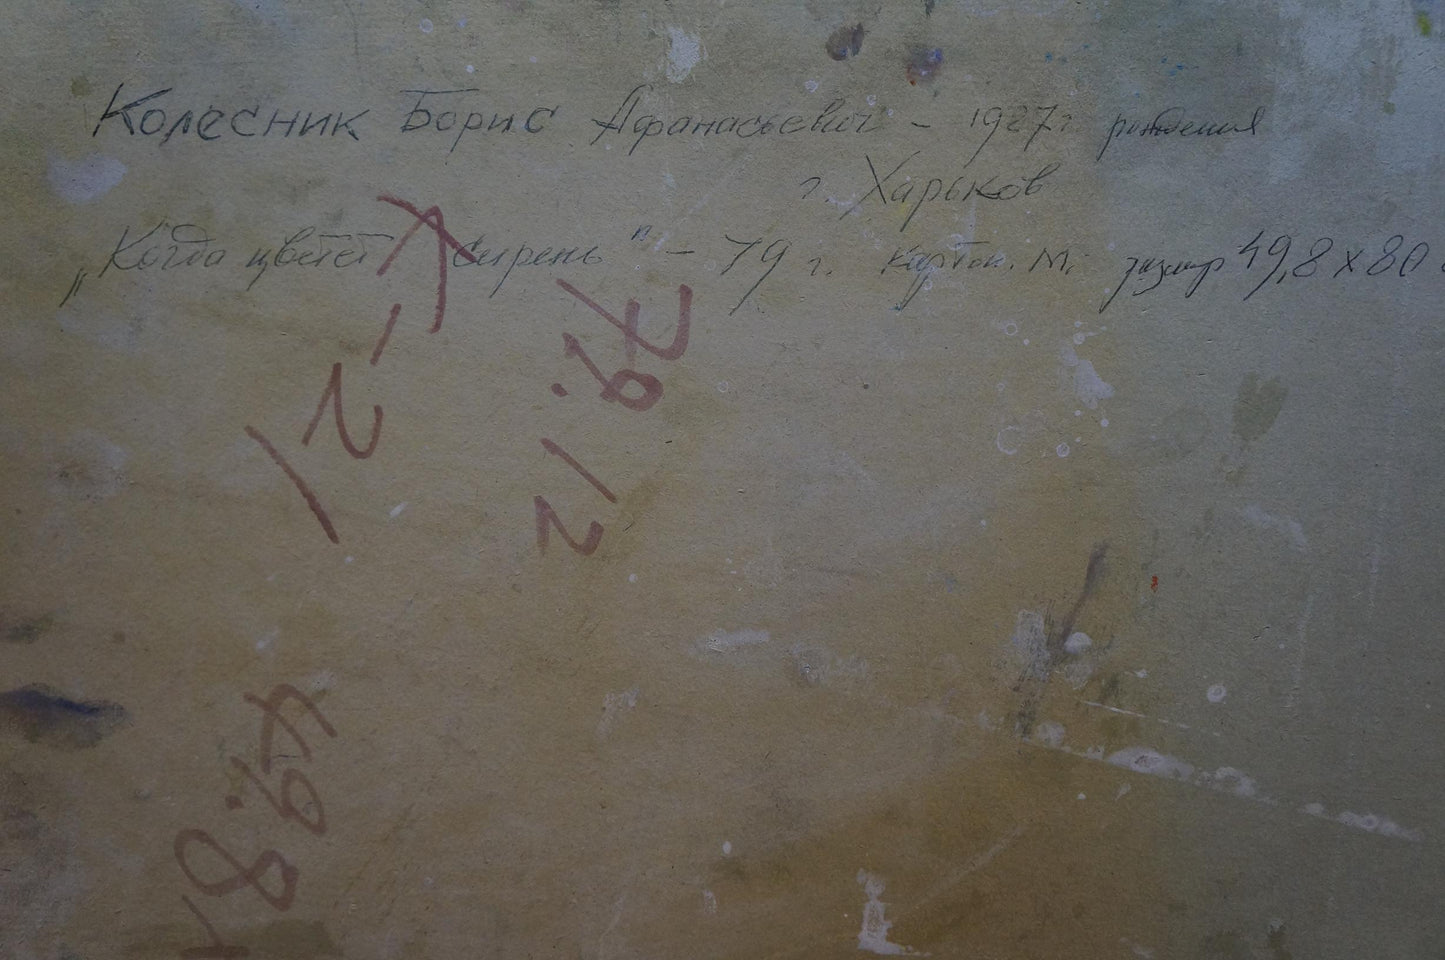 Колесник Борис Афанасьевич – 1927 г. рождения
г. Харьков
„Когда цветет сирень" – 79 г. картон. м. размер 49,8 x 80
К–21
79.12
49.8